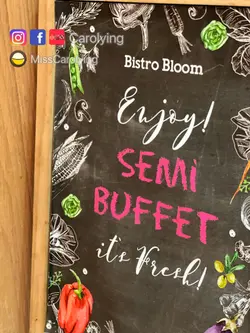 Carolying
MissCarolying
Bistro Bloom
Enjoy!
SEMi
BUFFET
it's Fresh!